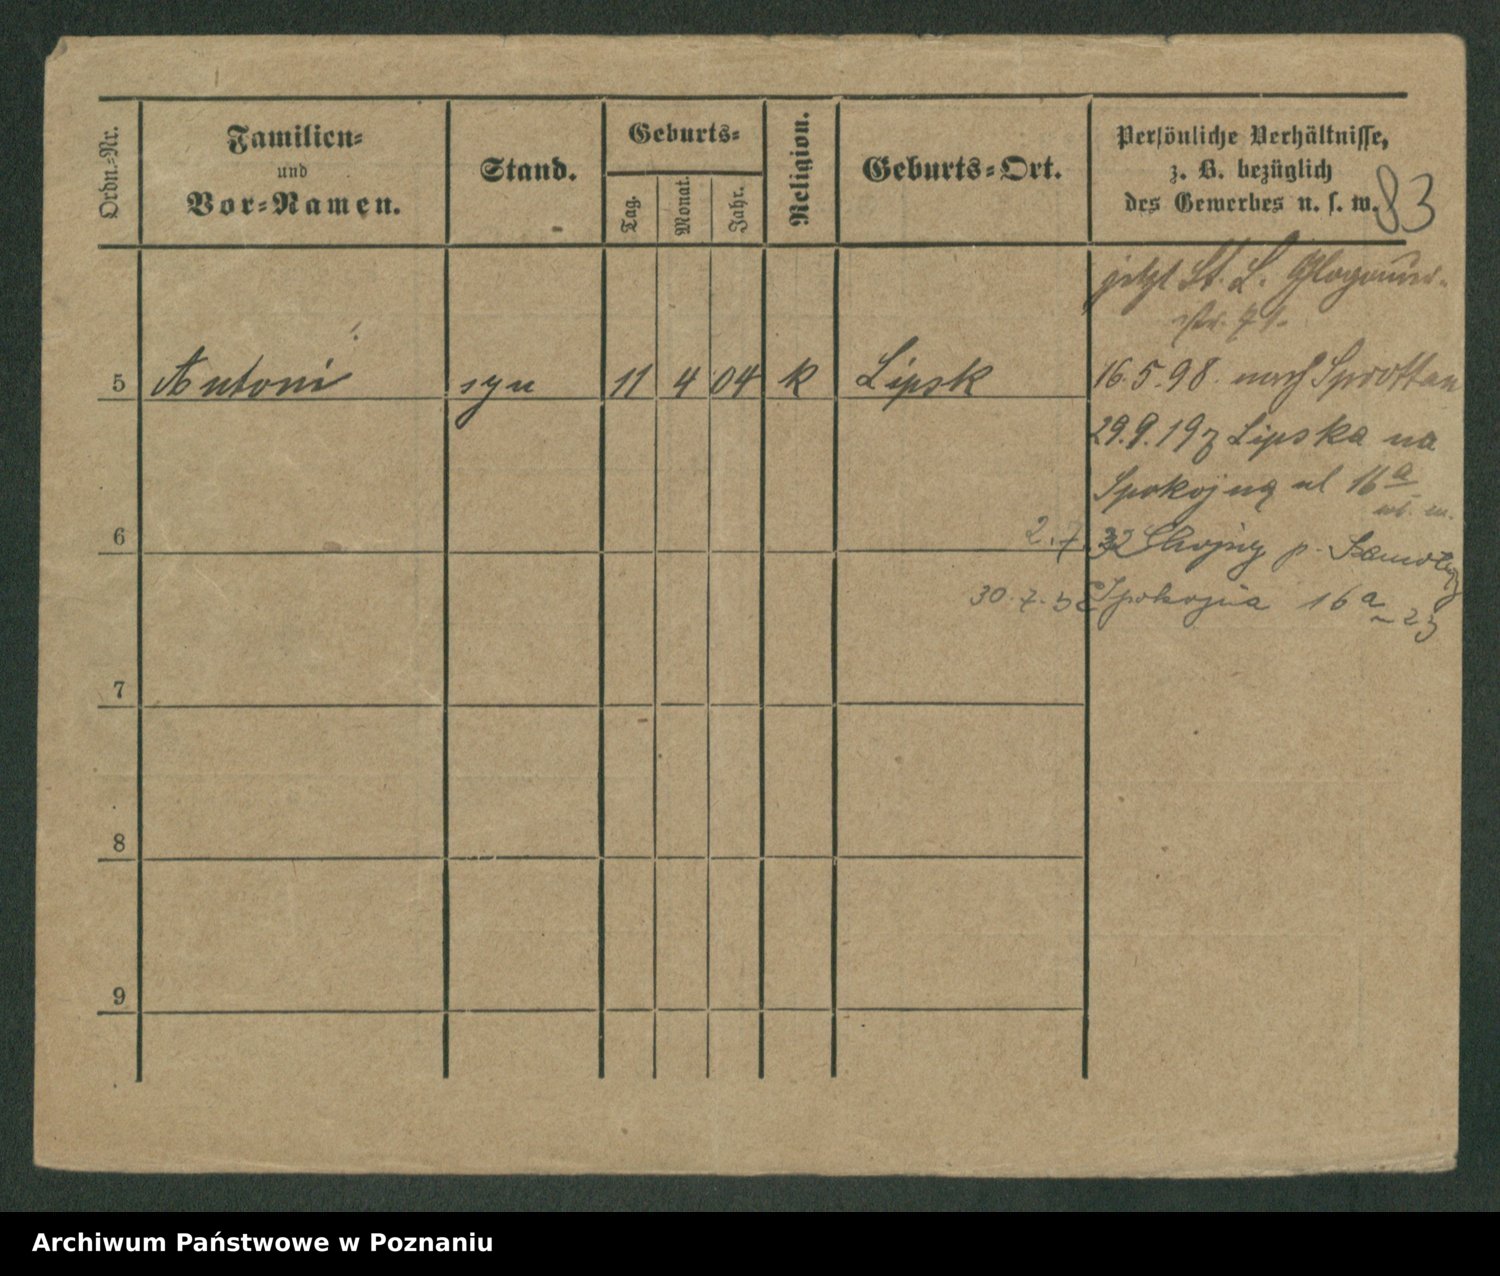 Ordn.-Nr.
Familien-
und
Vor-Namen.
Stand.
Geburts-
Tag.
Monat.
Jahr.
Religion.
Geburts-Ort.
Persönliche Verhältnisse,
z. B. bezüglich
des Gewerbes u. s. w.
83
jetzt St. L. Glogauer-
5 Antoni syn 11 4 04 k Lipsk
16.5.98. nach Sprottau
29.9.19 z Lipska na
Spokojną ul 16a
6
2.7.32 Chojny p.
30.7.32 Spokojna 16a
23
7
8
9
Archiwum Państwowe w Poznaniu